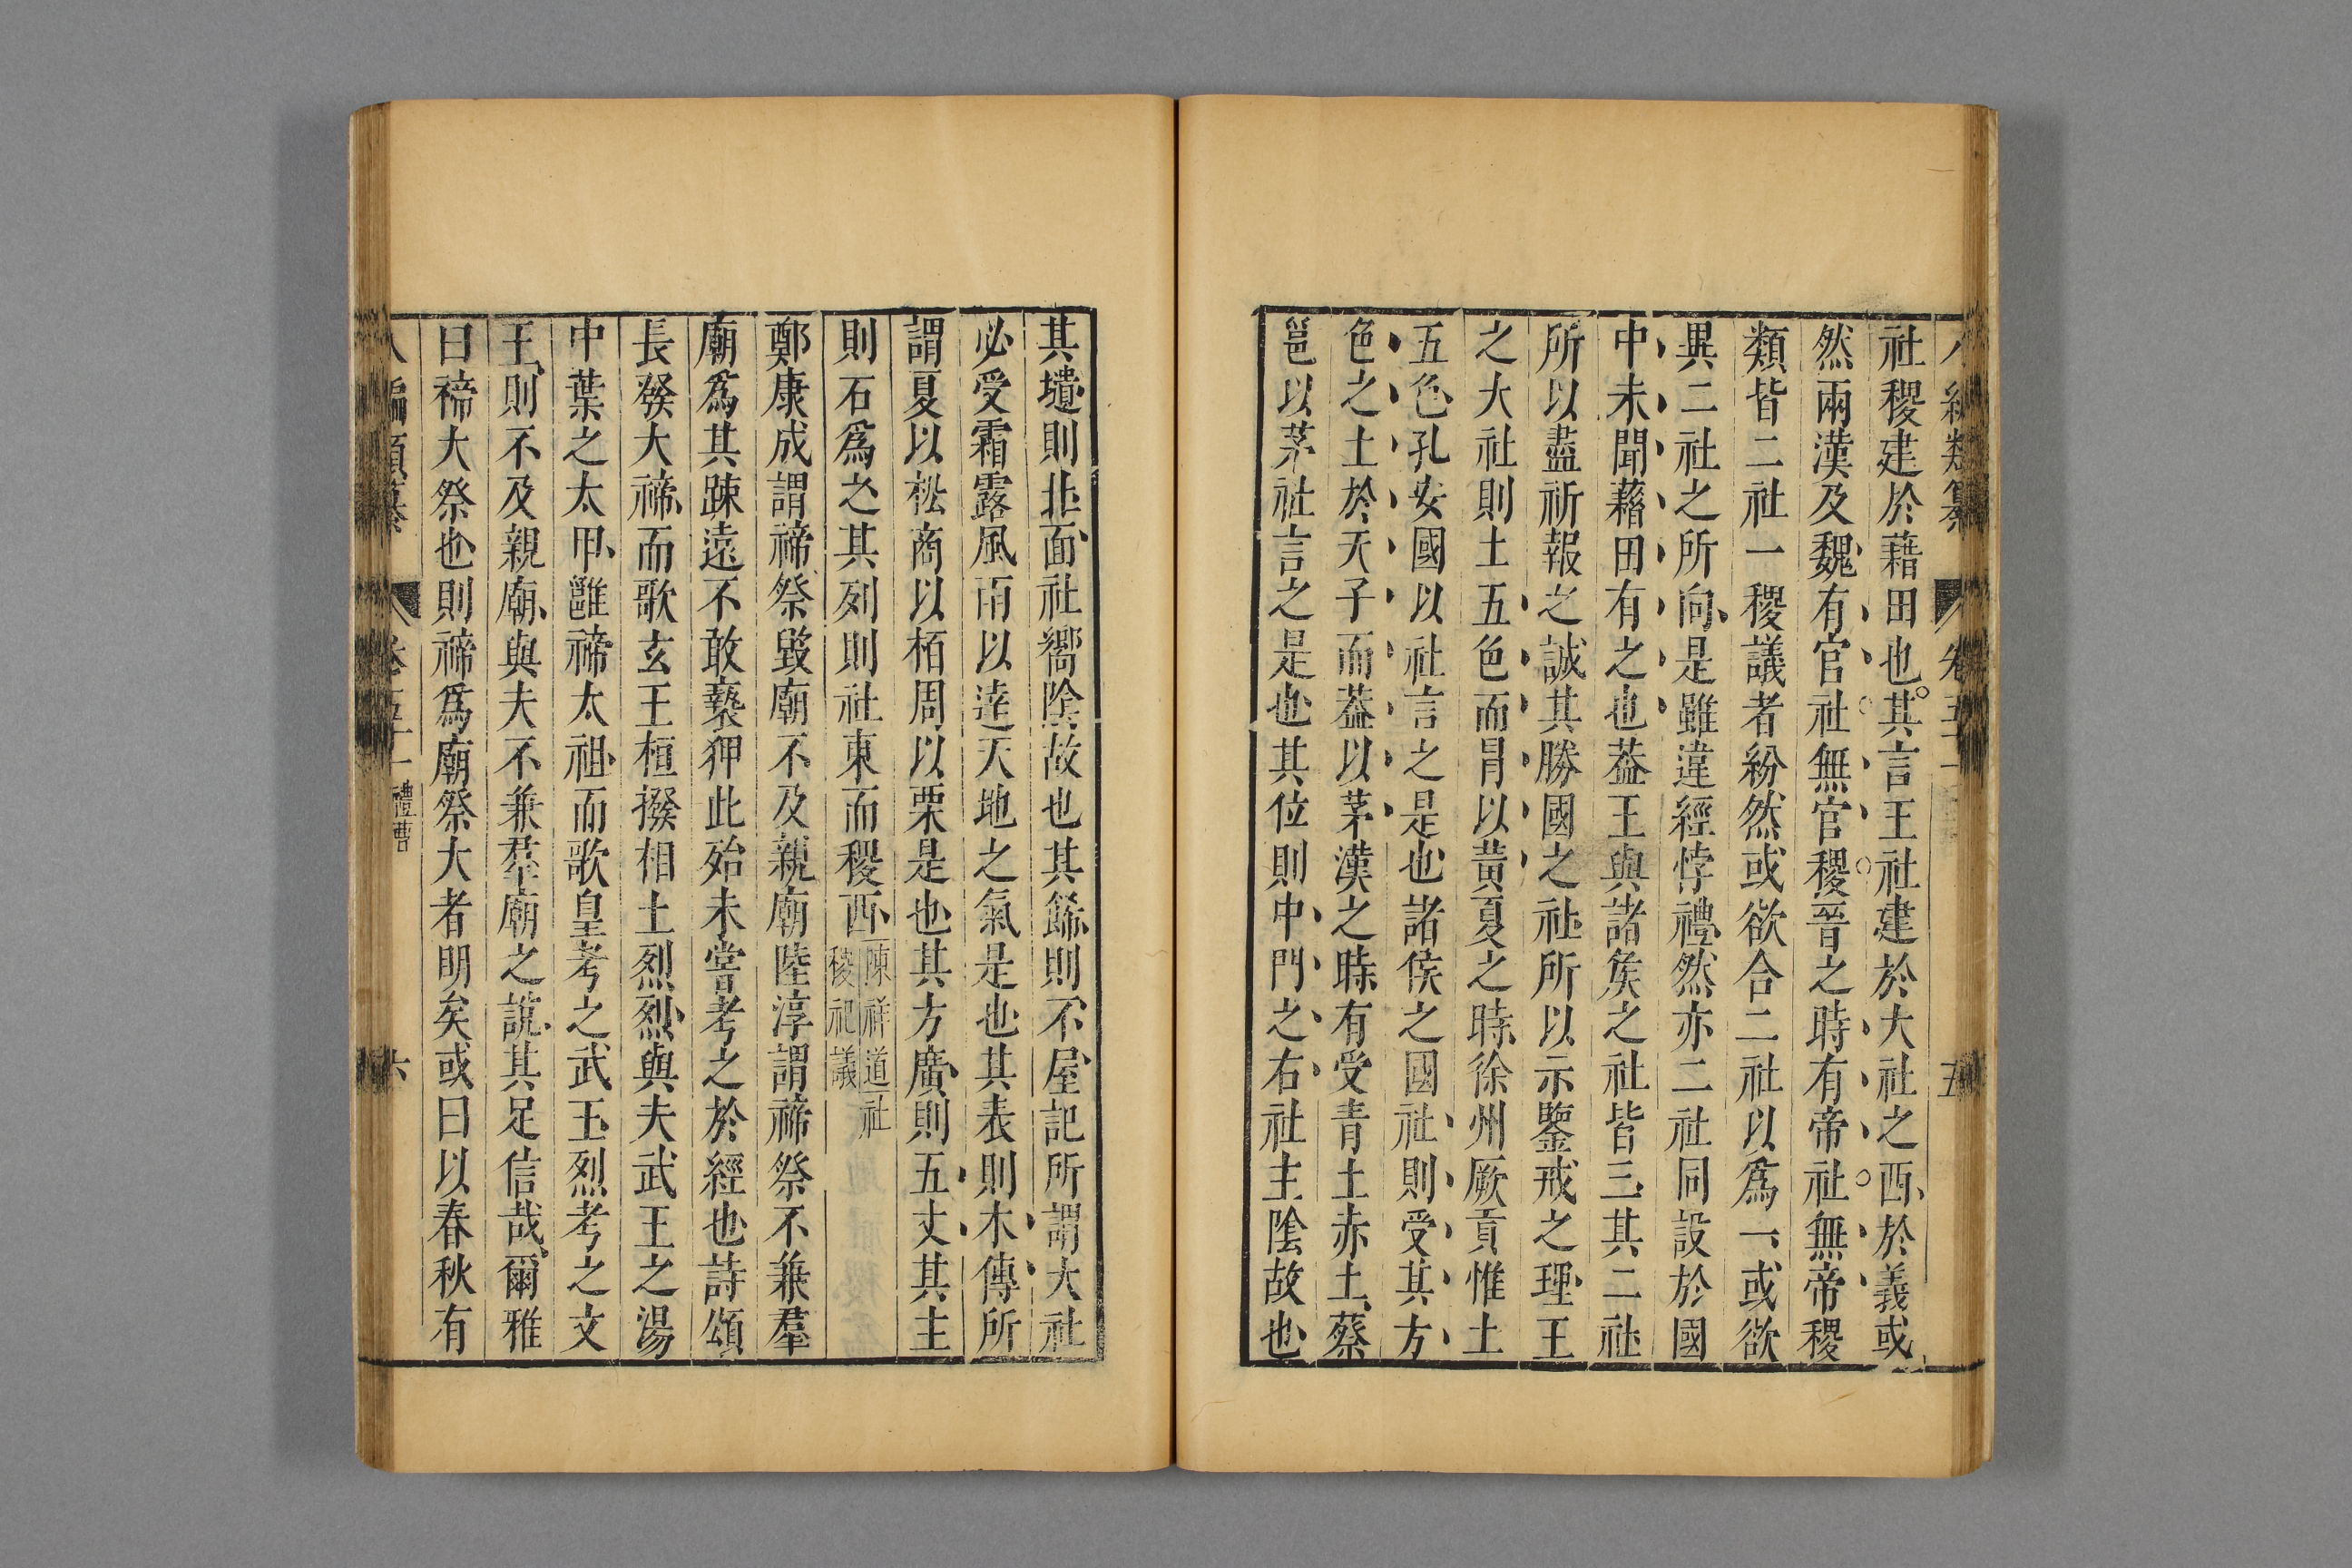 社稷建於藉田也其言王社建於大社之西於義或
然兩漢及魏有官社無官稷晉之時有帝社無帝稷
類皆二社一稷議者紛然或欲合二社以爲一或欲
異二社之所向是雖違經悖禮然亦二社同設於國
中未聞藉田有之也葢王與諸矦之社皆三其二社
所以盡祈報之誠其勝國之社所以示鑒戒之理王
之大社則土五色而冐以黃夏之時徐州厥貢惟土
五色孔安國以社言之是也諸侯之國社則受其方
色之土於天子而葢以茅漢之時有受青土赤土蔡
邕以茅社言之是也其位則中門之右社主陰故也
其壝則北面社嚮陰故也其餙則不屋記所謂大社
必受霜露風雨以逹天地之氣是也其表則木傳所
謂夏以松商以栢周以栗是也其方廣則五丈其主
則石爲之其列則社東而稷西陳祥道社
稷祀議
鄭康成謂禘祭毀廟不及親廟陸淳謂禘祭不兼羣
廟爲其踈遠不敢䙝狎此殆未嘗考之於經也詩頌
長發大禘而歌玄王桓撥相土烈烈與夫武王之湯
中葉之太甲雝禘太祖而歌皇考之武王烈考之文
王則不及親廟與夫不兼羣廟之說其足信哉爾雅
曰禘大祭也則禘爲廟祭大者明矣或曰以春秋有
禮曹
六